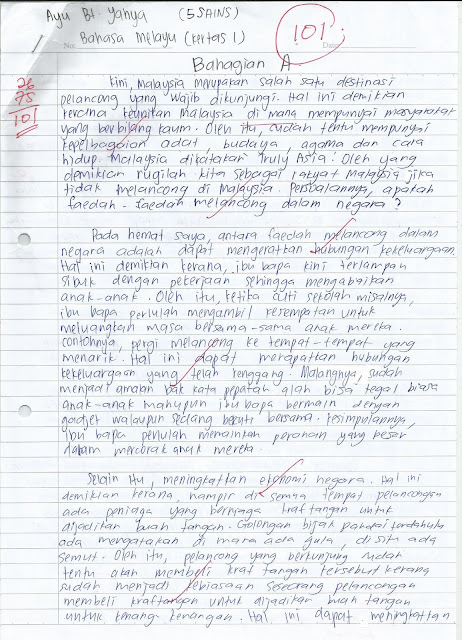 Ayu Bt. Yahya (5 SAINS)
Bahasa Melayu (Kertas 1)
No: Date:
101
Bahagian A
26
75
101
Kini, Malaysia merupakan salah satu destinasi
pelancong yang wajib dikunjungi. Hal ini demikian
kerana keunikan Malaysia di mana mempunyai masyarakat
yang berbilang kaum. Oleh itu, sudah tentu mempunyai
kepelbagaian adat, budaya, agama dan cara
hidup. Malaysia dikatakan Truly Asia! Oleh yang
demikian rugilah kita sebagai rakyat Malaysia jika
tidak melancong di Malaysia. Persoalannya, apakah
faedah-faedah melancong dalam negara?
Pada hemat saya, antara faedah melancong dalam
negara adalah dapat mengeratkan hubungan kekeluargaan.
Hal ini demikian kerana, ibu bapa kini terlampau
sibuk dengan pekerjaan sehingga mengabaikan
anak-anak. Oleh itu, ketika cuti sekolah misalnya,
ibu bapa perlulah mengambil kesempatan untuk
meluangkan masa bersama-sama anak mereka.
contohnya, pergi melancong ke tempat-tempat yang
menarik. Hal ini dapat merapatkan hubungan
kekeluargaan yang telah renggang. Malangnya, sudah
menjadi amalan bak kata pepatah alah bisa tegal biasa
anak-anak mahupun ibu bapa bermain dengan
gadjet walaupun sedang bercuti bersama. Kesimpulannya,
ibu bapa perlulah memainkan peranan yang besar
dalam mencorak anak mereka.
Selain itu, meningkatkan ekonomi negara. Hal ini
demikian kerana, hampir di semua tempat pelancongan
ada peniaga yang berniaga kraftangan untuk
dijadikan buah tangan. Golongan bijak pandai terdahulu
ada mengatakan di mana ada gula, di situ ada
semut. Oleh itu, pelancong yang berkunjung sudah
tentu akan membeli kraf tangan tersebut kerana
sudah menjadi kebiasaan seseorang pelancongan
membeli kraftangan untuk dijadikan buah tangan
untuk kenang-kenangan. Hal ini dapat meningkatkan